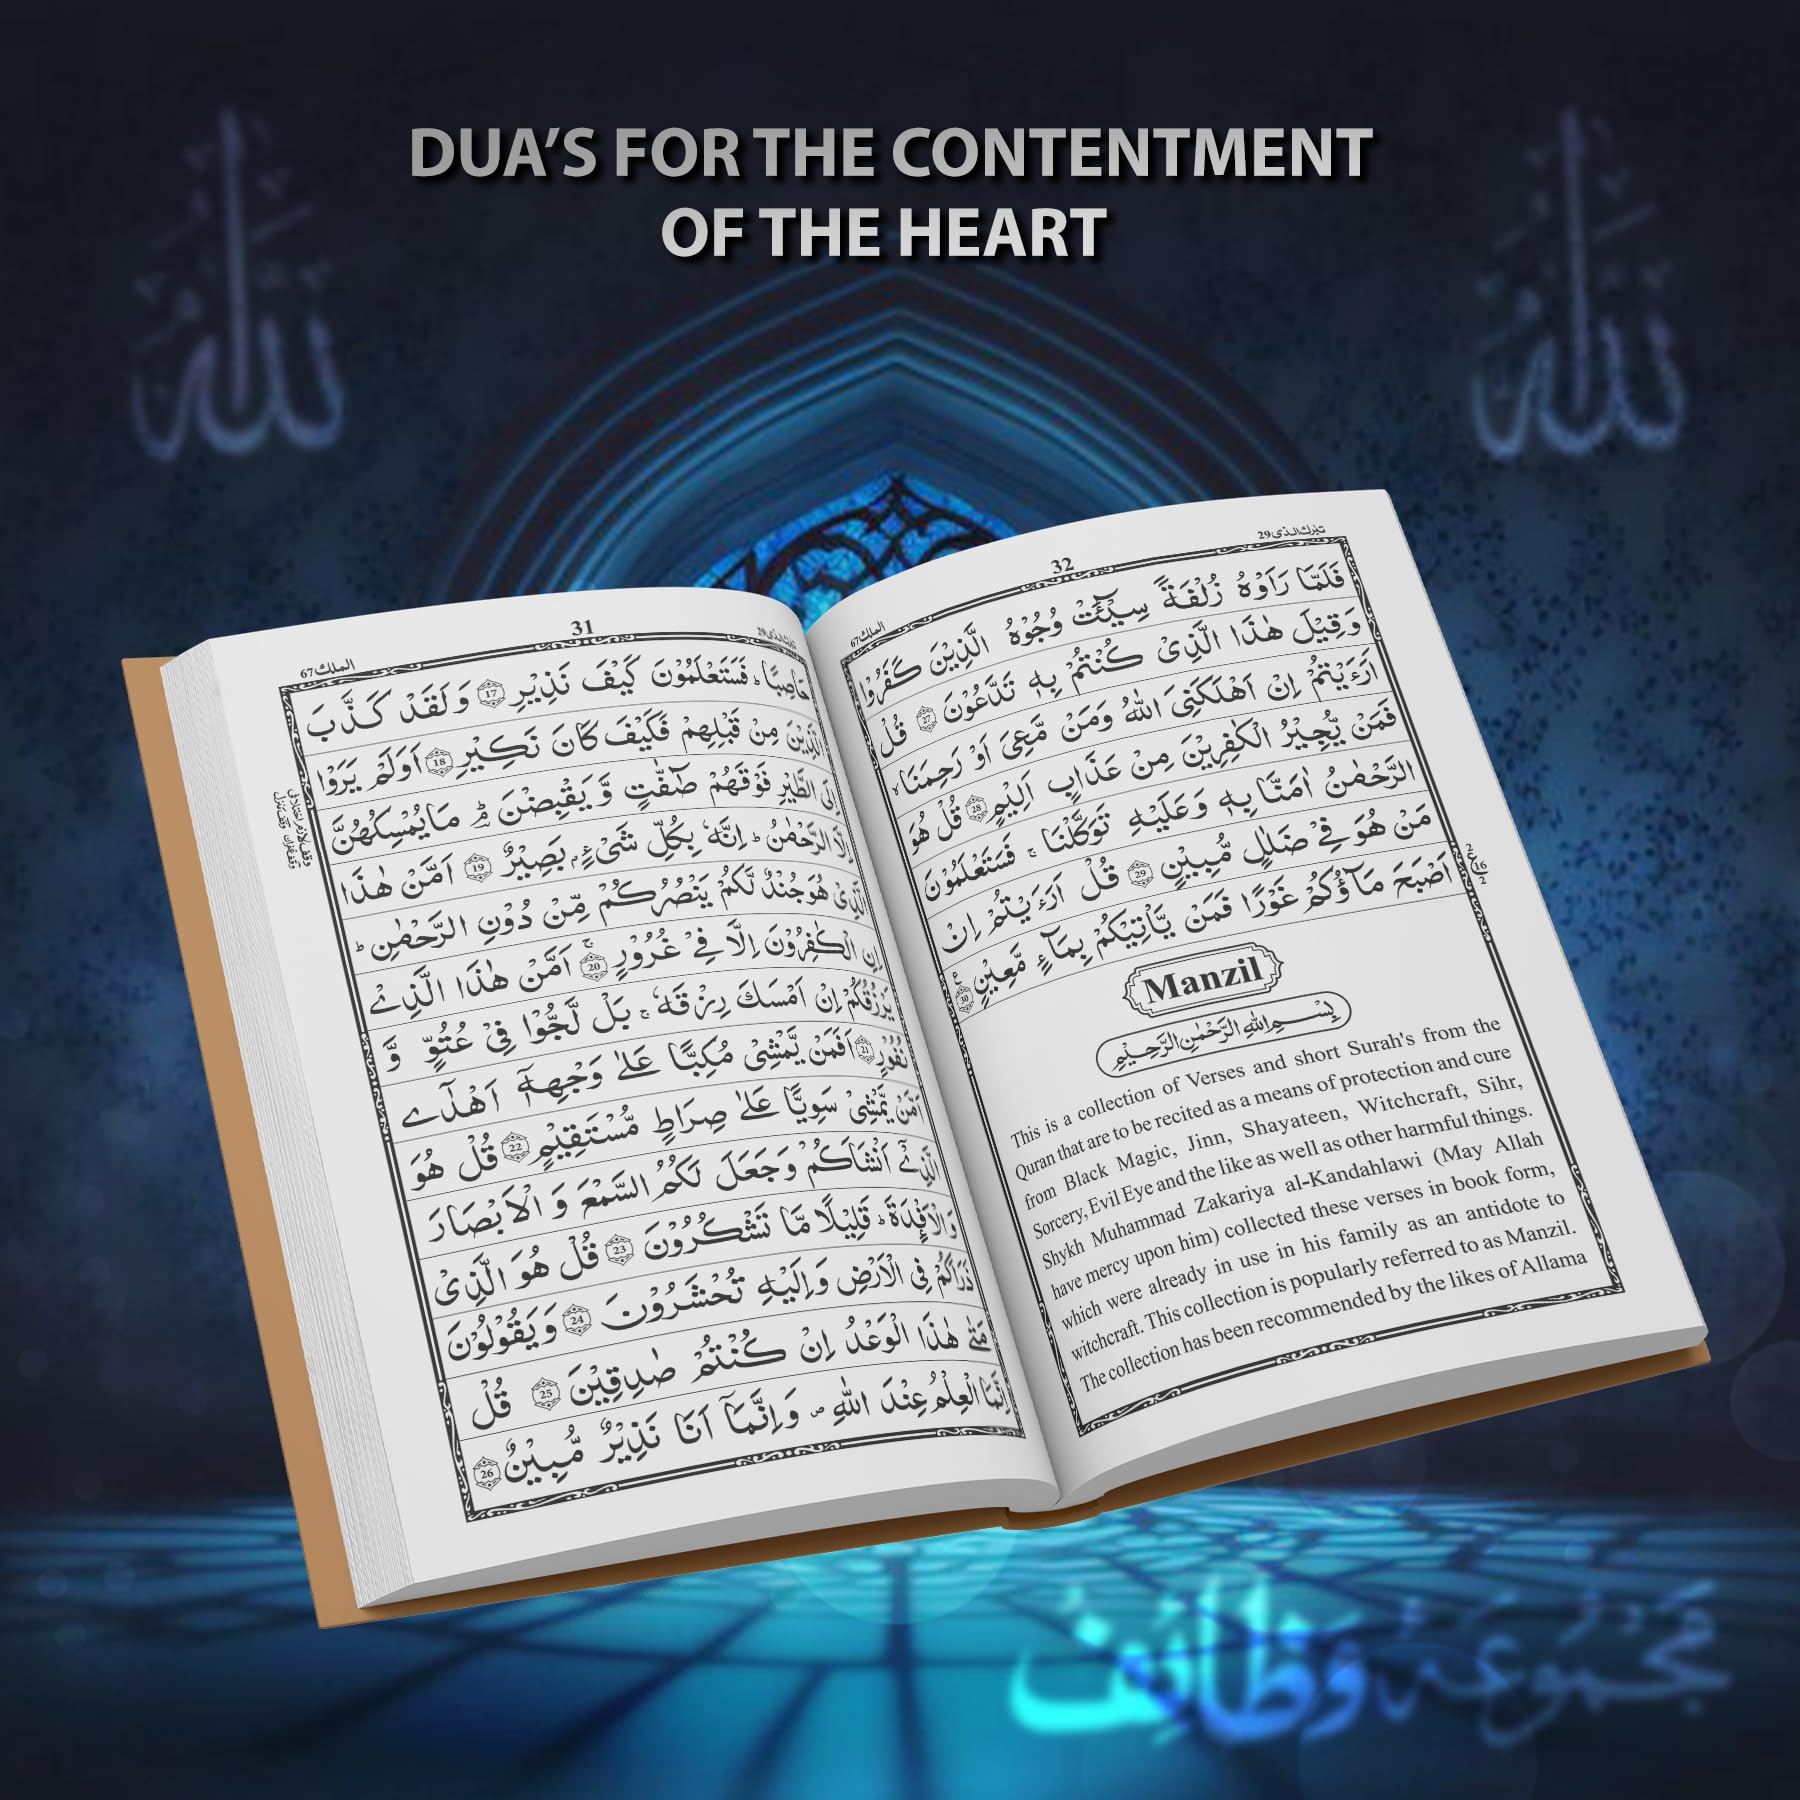 DUA'S FOR THE CONTENTMENT
OF THE HEART
الله
الله
31
الملك 67
تبرك الذى 29
حَاصِبًا ؕ فَسَتَعْلَمُوْنَ كَيْفَ نَذِيْرِ 17 وَلَقَدْ كَذَّبَ
الَّذِيْنَ مِنْ قَبْلِهِمْ فَكَيْفَ كَانَ نَكِيْرِ 18 اَوَلَمْ يَرَوْا
اِلَى الطَّيْرِ فَوْقَهُمْ صٰٓفّٰتٍ وَّ يَقْبِضْنَ ؔؕ مَا يُمْسِكُهُنَّ
اِلَّا الرَّحْمٰنُ ؕ اِنَّهٗ بِكُلِّ شَىْءٍۭ بَصِيْرٌ 19 اَمَّنْ هٰذَا
الَّذِىْ هُوَ جُنْدٌ لَّكُمْ يَنْصُرُكُمْ مِّنْ دُوْنِ الرَّحْمٰنِ ؕ
اِنِ الْكٰفِرُوْنَ اِلَّا فِىْ غُرُوْرٍ ۚ 20 اَمَّنْ هٰذَا الَّذِىْ
يَرْزُقُكُمْ اِنْ اَمْسَكَ رِزْقَهٗ ۚ بَلْ لَّجُّوْا فِىْ عُتُوٍّ وَّ
نُفُوْرٍ 21 اَفَمَنْ يَّمْشِىْ مُكِبًّا عَلٰى وَجْهِهٖۤ اَهْدٰٓى
اَمَّنْ يَّمْشِىْ سَوِيًّا عَلٰى صِرَاطٍ مُّسْتَقِيْمٍ 22 قُلْ هُوَ
الَّذِىْۤ اَنْشَاَكُمْ وَجَعَلَ لَكُمُ السَّمْعَ وَ الْاَبْصَارَ
وَالْاَفْـِٕدَةَ ؕ قَلِيْلًا مَّا تَشْكُرُوْنَ 23 قُلْ هُوَ الَّذِىْ
ذَرَاَكُمْ فِى الْاَرْضِ وَاِلَيْهِ تُحْشَرُوْنَ 24 وَيَقُوْلُوْنَ
مَتٰى هٰذَا الْوَعْدُ اِنْ كُنْتُمْ صٰدِقِيْنَ 25 قُلْ
اِنَّمَا الْعِلْمُ عِنْدَ اللّٰهِ ۖ وَاِنَّمَاۤ اَنَا نَذِيْرٌ مُّبِيْنٌ 26
32
الملك 67
تبرك الذى 29
فَلَمَّا رَاَوْهُ زُلْفَةً سِيْٓـَٔتْ وُجُوْهُ الَّذِيْنَ كَفَرُوْا
وَقِيْلَ هٰذَا الَّذِىْ كُنْتُمْ بِهٖ تَدَّعُوْنَ 27 قُلْ
اَرَءَيْتُمْ اِنْ اَهْلَكَنِىَ اللّٰهُ وَمَنْ مَّعِىَ اَوْ رَحِمَنَا ۙ
فَمَنْ يُّجِيْرُ الْكٰفِرِيْنَ مِنْ عَذَابٍ اَلِيْمٍ 28 قُلْ هُوَ
الرَّحْمٰنُ اٰمَنَّا بِهٖ وَعَلَيْهِ تَوَكَّلْنَا ۚ فَسَتَعْلَمُوْنَ
مَنْ هُوَ فِىْ ضَلٰلٍ مُّبِيْنٍ 29 قُلْ اَرَءَيْتُمْ اِنْ
اَصْبَحَ مَآؤُكُمْ غَوْرًا فَمَنْ يَّاْتِيْكُمْ بِمَآءٍ مَّعِيْنٍ 30
Manzil
بِسْمِ اللهِ الرَّحْمٰنِ الرَّحِيْمِ
This is a collection of Verses and short Surah's from the
Quran that are to be recited as a means of protection and cure
from Black Magic, Jinn, Shayateen, Witchcraft, Sihr,
Sorcery, Evil Eye and the like as well as other harmful things.
Shykh Muhammad Zakariya al-Kandahlawi (May Allah
have mercy upon him) collected these verses in book form,
which were already in use in his family as an antidote to
witchcraft. This collection is popularly referred to as Manzil.
The collection has been recommended by the likes of Allama
مجموعہ وظائف